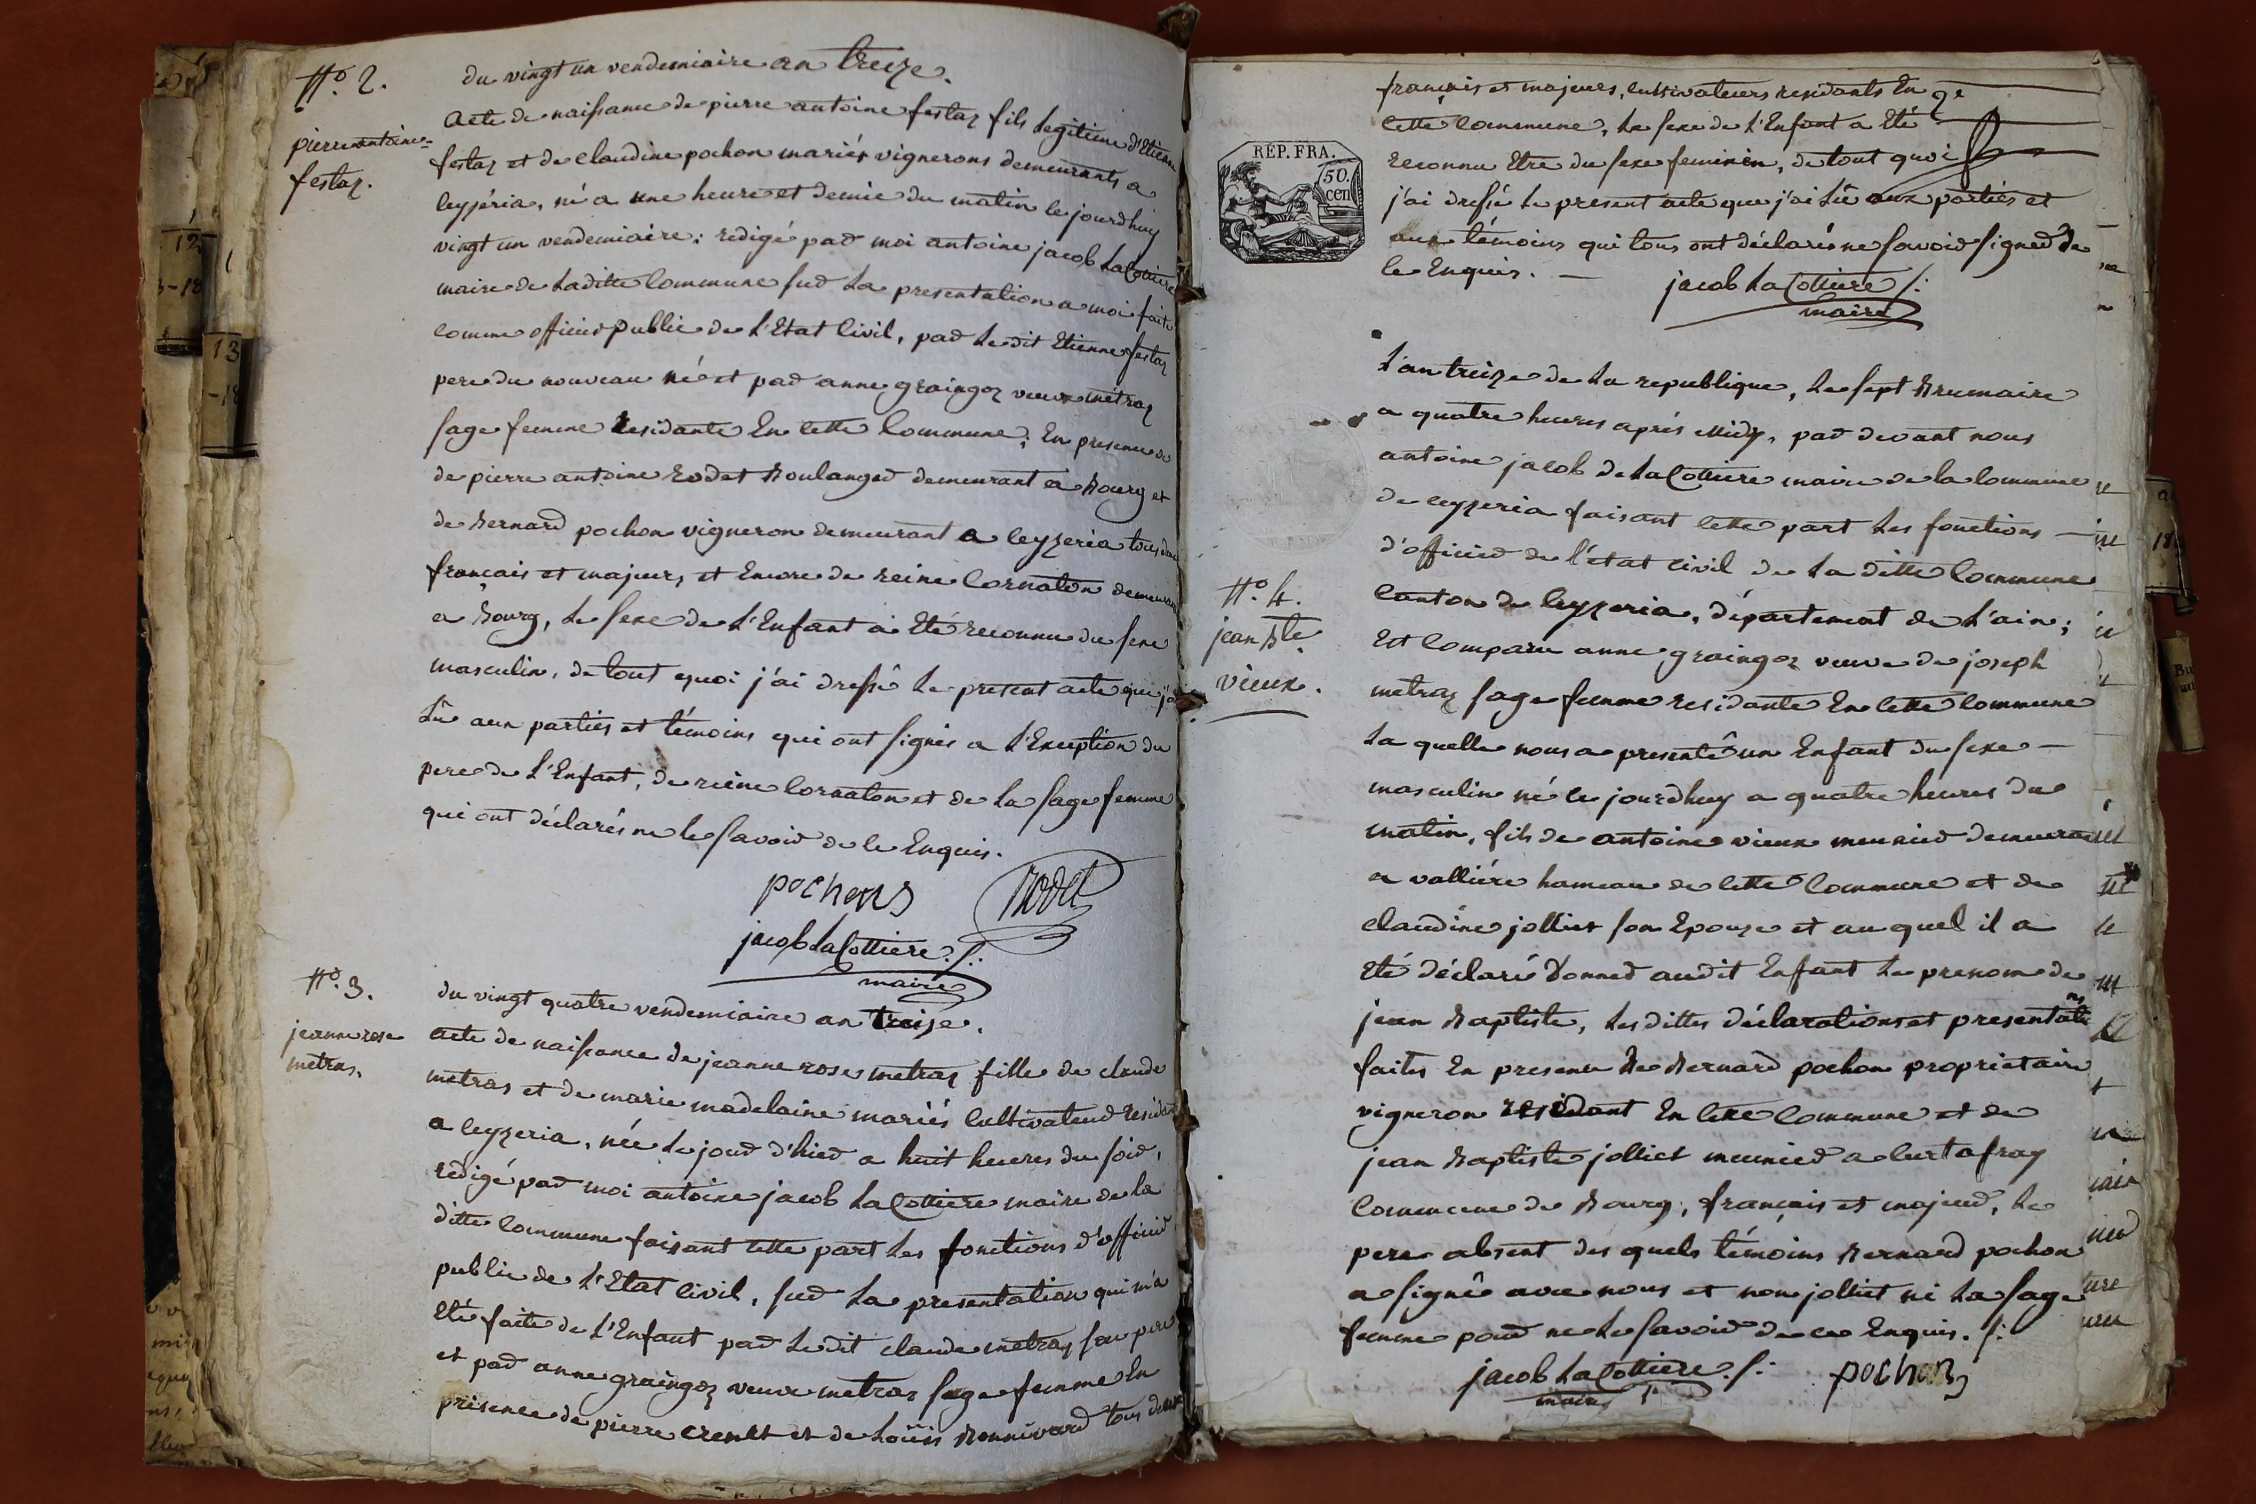 N.o 2.
pierre antoine
festaz.
du vingt un vendemiaire an treize.
acte de naissance de pierre antoine festaz fils legitime d'Etienne
festaz et de claudine pochon mariés vignerons demeurants a
ceyzéria, né a une heure et demie du matin le jourdhuy
vingt un vendemiaire; redigé par moi antoine jacob LaCottiere
maire de Laditte Commune sur La presentation a moi faite
comme officier public de L'Etat Civil, par Ledit Etienne festaz
pere du nouveau né et par anne graingoz veuve metraz
sage femme residante En cette Commune; En presence
de pierre antoine rodet Boulanger demeurant a Bourg et
de Bernard pochon vigneron demeurant a Ceyzeria tous deux
français et majeurs, et Encore de reine Cornaton demeurant
a Bourg, Le sexe de L'Enfant a Eté reconnu du sexe
masculin, de tout quoi j'ai dressé Le present acte que j'ai
Lû aux parties et témoins qui ont signés a L'Exception du
pere de L'Enfant, de reine Cornaton et de La sage femme
qui ont déclarés ne Le savoir de ce Enquis.
pochon
Rodet
jacob LaCottiere
maire
N.o 3.
jeanne rose
metras.
du vingt quatre vendemiaire an treize.
acte de naissance de jeanne rose metraz fille de claude
metras et de marie madelaine mariés Cultivateur residants
a Ceyzeria, née Le jour d'hier a huit heures du soir,
redigé par moi antoine jacob LaCottiere maire de la
ditte Commune faisant cette part Les fonctions d'officier
public de L'Etat Civil, sur La presentation qui m'a
Eté faite de L'Enfant par Le dit claude metraz son pere
et par anne graingoz veuve metraz sage femme En
présence de pierre et de Loüis Bonnivard tous deux
français et majeurs, cultivateurs residants En
cette Commune, Le sexe de L'Enfant a Eté
RÉP. FRA.
50.
cen
reconnu Etre du sexe feminin, de tout quoi
j'ai dressé Le present acte que j'ai Lû aux parties et
aux témoins qui tous ont déclarés ne savoir signer de
ce Enquis.
jacob LaCottiere
maire
L'an treize de La republique, Le sept Brumaire
a quatre heures aprés Midy, par devant nous
antoine jacob de LaCottiere maire de la Commune
de ceyzeria faisant cette part Les fonctions
d'officier de l'état civil de La ditte Commune
N.o 4.
jean Bte.
vieux.
Canton de Ceyzeria, département de L'ain;
Est Comparue anne graingoz veuve de joseph
metraz sage femme residante En cette Commune
La quelle nous a presenté un Enfant du sexe
masculin né ce jourdhuy a quatre heures du
matin, fils de antoine vieux meunier demeurant
a valliére hameau de cette Commune et de
claudine jolliet son Epouze et au quel il a
Eté déclaré donner audit Enfant Le prenom de
jean Baptiste, Les dittes déclarations et presentations
faites En presence de Bernard pochon proprietaire
vigneron résidant En cette Commune et de
jean Baptiste jolliet meunier a Curtafray
Commune de Bourg, français et majeur, Le
pere absent des quels témoins Bernard pochon
a signé avec nous et non jolliet ni La sage
femme pour ne Le savoir de ce Enquis.
jacob LaCottiere
maire
pochon